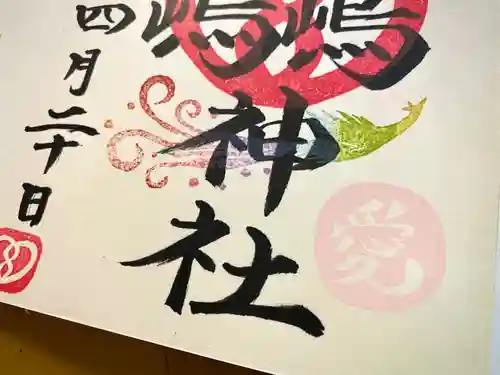 愛
神社
四月二十日